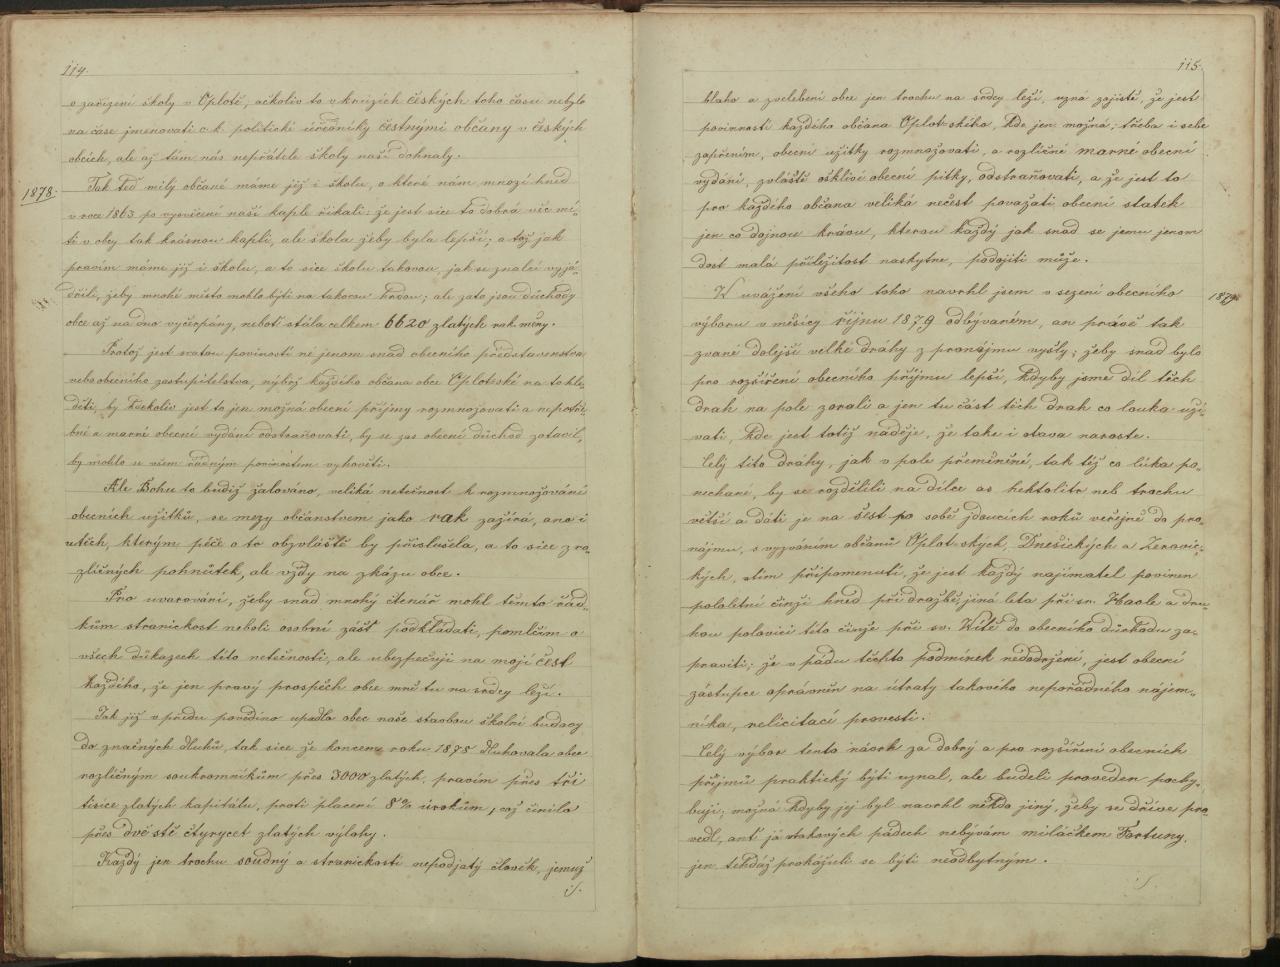 114.
o zařízení školy v Oplotě, ačkoliv to v kruzích českých toho času nebylo
na čase jmenovati c. k. politické úředníky čestnými občany v českých
obcích, ale až tam nás nepřátelé školy naší dohnaly.
1878.
Tak teď milý občané máme již i školu, o které nám mnozí hned
v roce 1863 po vysvěcení naší kaple říkali: že jest sice to dobrá věc mí-
ti v obcy tak krásnou kapli, ale škola žeby byla lepší; a tož jak
pravím máme již i školu, a to sice školu takovou, jak se znalci vyjá-
dřili, žeby mnohé město mohlo býti na takovou hrdou; ale zato jsou důchody
obce až na dno vyčerpány, neboť stála celkem 6620 zlatých rak. měny.
Protož jest svatou povinností né jenom snad obecního představenstva
nebo obecního zastupitelstva, nýbrž každého občana obce Oplotské na to hle-
děti, by kdekoliv jest to jen možná obecní příjmy rozmnožovati a nepotře-
bné a marné obecní vydání odstraňovati, by se zas obecní důchod zotavil,
by mohlo se všem řádným povinostem vyhověti.
Ale Bohu to budiž žalováno, veliká netečnost k rozmnožování
obecních užitků, se mezy občanstvem jako rak zažírá, ano i
u těch, kterým péče o to obzvláště by příslušela, a to sice z ro-
zličných pohnůtek, ale vždy na zkázu obce.
Pro uvarování, žeby snad mnohý čtenář mohl těmto řád-
kům stranickost neboli osobní zášť podkládati, pomlčím o
všech důkazech této netečnosti, ale ubezpečuji na mojí čest
každého, že jen pravý prospěch obce mně tu na srdcy leží.
Jak již v předu povědíno upadla obec naše stavbou školní budovy
do značných dluhů, tak sice že koncem roku 1878 dluhovala obec
rozličným soukromníkům přes 3000 zlatých, pravím přes tři
tisíce zlatých kapitálu, proti placení 8% úrokům, což činilo
přes dvě stě čtyrycet zlatých výlohy.
Každý jen trochu soudný a stranickosti nepodjatý člověk, jemuž
·/.
115.
blaho a zvelebení obce jen trochu na srdcy leží, uzná zajisté, že jest
povinností každého občana Oplotského, kde jen možná; třeba i sebe
zapřením, obecní užitky rozmnožovati, a rozličné marné obecní
vydání, zvláště ošklivé obecní pitky, odstraňovati, a že jest to
pro každého občana veliká nečest považati obecní statek
jen co dojnou krávu, kterou každý jak snad se jemu jenom
dost malá příležitost naskytne, podojiti může.
1879
V uvážení všeho toho navrhl jsem v sezení obecního
výboru v měsícy říjnu 1879 odbývaném, an právě tak
zvané dolejší velké dráhy z pronájmu vyšly; žeby snad bylo
pro rozšíření obecního příjmu lepší, kdyby jsme díl těch
drah na pole zorali a jen tu část těch drah co louka uží-
vati, kde jest totiž naděje, že také i otava naroste.
Celý tito dráhy, jak v pole přeměněné, tak též co lúka po-
nechané, by se rozdělili na dílce as hektolitr neb trochu
větší a dáti je na šest po sobě jdoucích roků veřejně do pro-
nájmu, s vyzváním občanů Oplotských, Dnešických a Zerovic-
kých, stím připomenutí, že jest každý najímatel povinen
pololetní činži hned při dražbě, jiná léta při sv. Havle a dru-
hou polovici této činže při sv. Vítě do obecního důchodu za-
praviti; že v pádu těchto podmínek nedodržení, jest obecní
zástupce oprávněn na útraty takového nepořádného nájem-
níka, relicitací provésti.
Celý výbor tento návrh za dobrý a pro rozšíření obecních
příjmů praktický býti uznal, ale budeli proveden pochy-
buji; možná kdyby jej byl navrhl někdo jiný, žeby se dříve pro-
vedl, anť já v takových pádech nebývám miláčkem Fortuny,
jen tehdáž prokážuli se býti neodbytným.
·/.